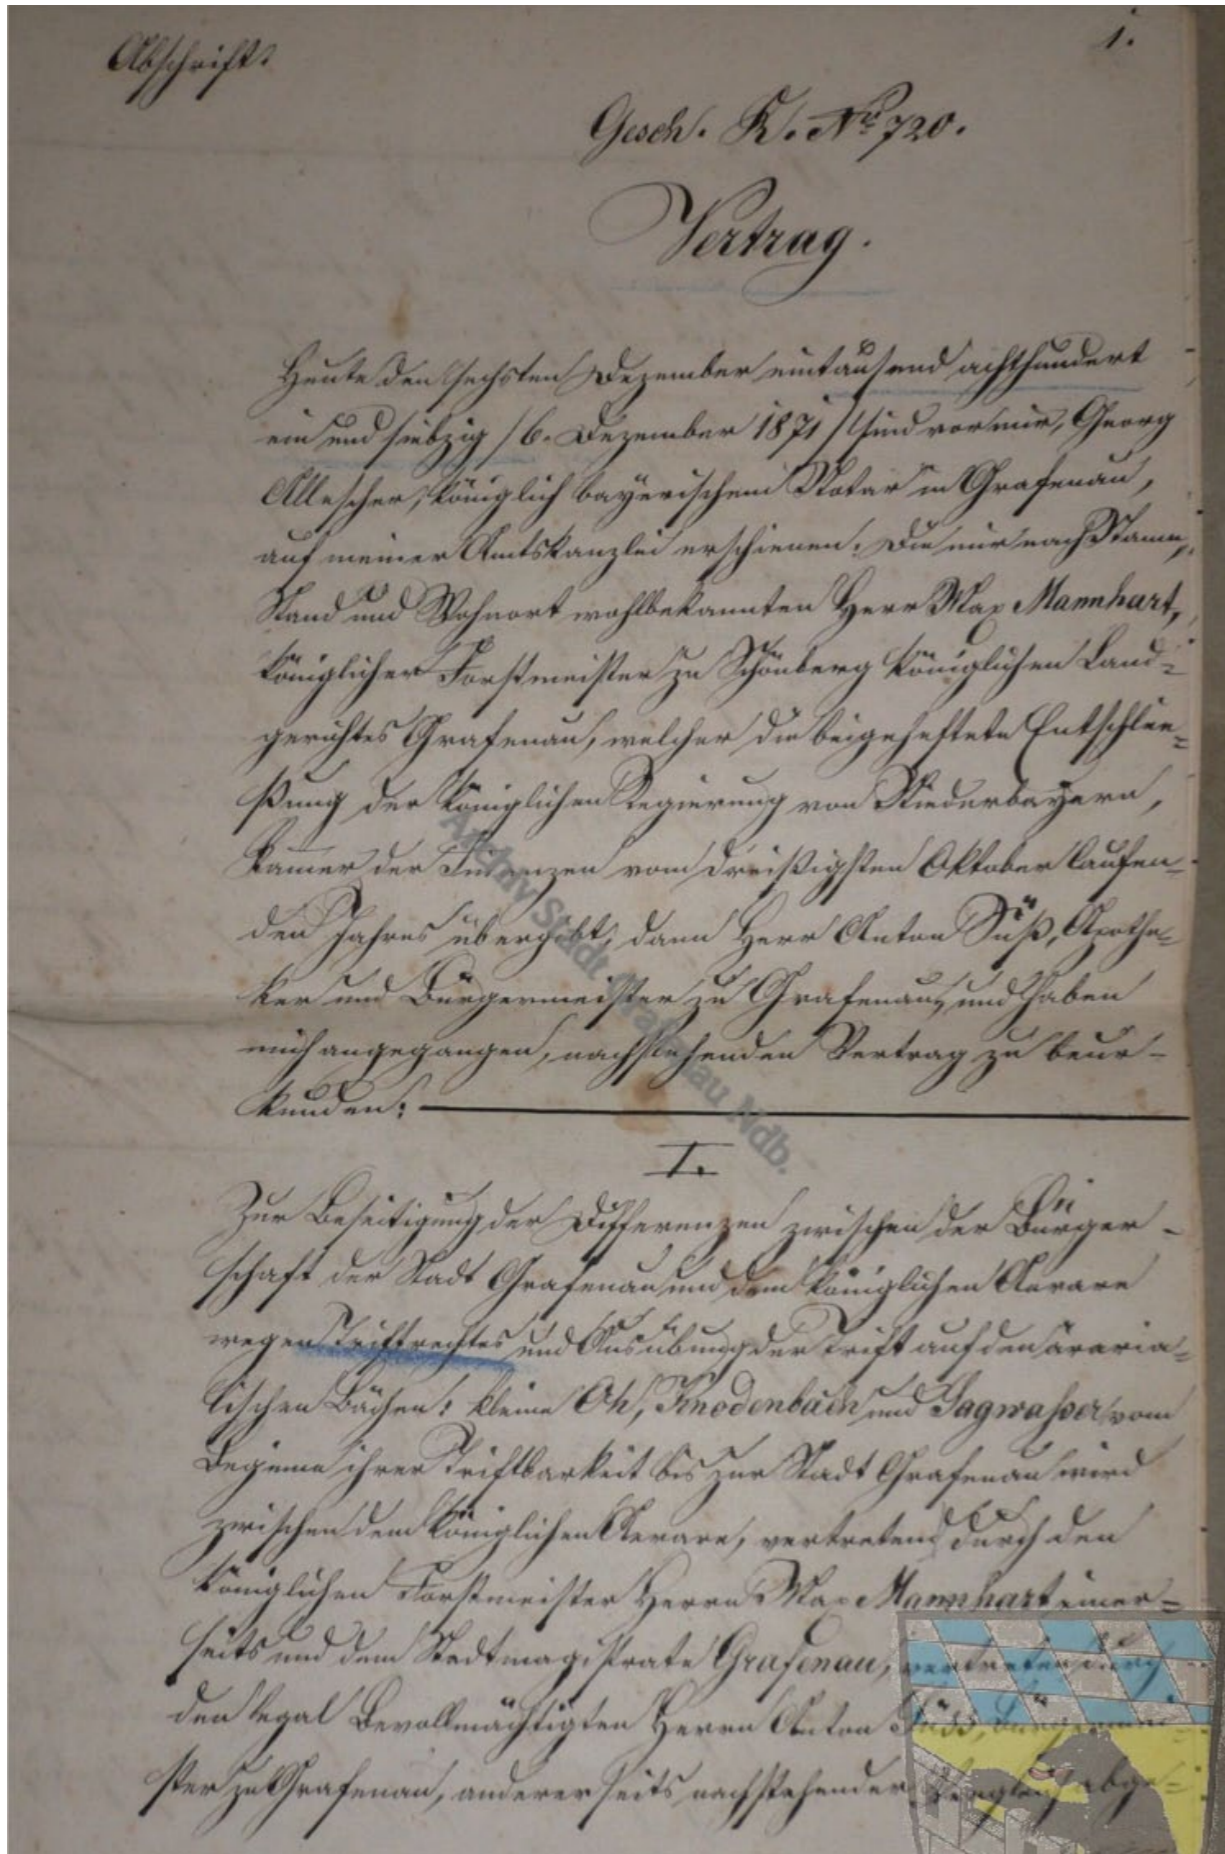 Abschrift.
1.
Gesch. R. No 720.
Vertrag.
Heute den sechsten Dezember eintausend achthundert
ein und siebzig /6. Dezember 1871/ sind vor mir, Georg
Allescher, königlich bayerischem Notar in Grafenau,
auf meiner Amtskanzlei erschienen. Die mir nach Namen,
Stand und Wohnort wohlbekannten Herr Max Mannhart,
königlicher Forstmeister zu Schönberg königlichen Land=
gerichtes Grafenau, welcher die beigeheftete Entschlie=
ßung der königlichen Regierung von Niederbayern,
Kammer der Finanzen vom dreißigsten Oktober laufen-
den Jahres übergibt, dann Herr Anton Süß, Apothe=
ker und Bürgermeister zu Grafenau, und haben
mich angegangen, nachstehenden Vertrag zu beur-
kunden:
I.
Zur Beseitigung der Differenzen zwischen der Bürger-
schaft der Stadt Grafenau und dem königlichen Aerare
wegen Triftrechtes und Ausübung der Trift auf den äraria=
lischen Bächen: kleine Oh, Knodenbach und Sagwasser vom
Beginne ihrer Triftbarkeit bis zur Stadt Grafenau wird
zwischen dem königlichen Aerare, vertretend durch den
königlichen Forstmeister Herrn Max Mannhart einer=
seits und dem Stadtmagistrate Grafenau, vertreten durch
den legal Bevollmächtigten Herrn Anton Süss, Bürgermei-
ster zu Grafenau, andererseits nachstehender Vergleich abge=
Archiv Stadt Grafenau Ndb.